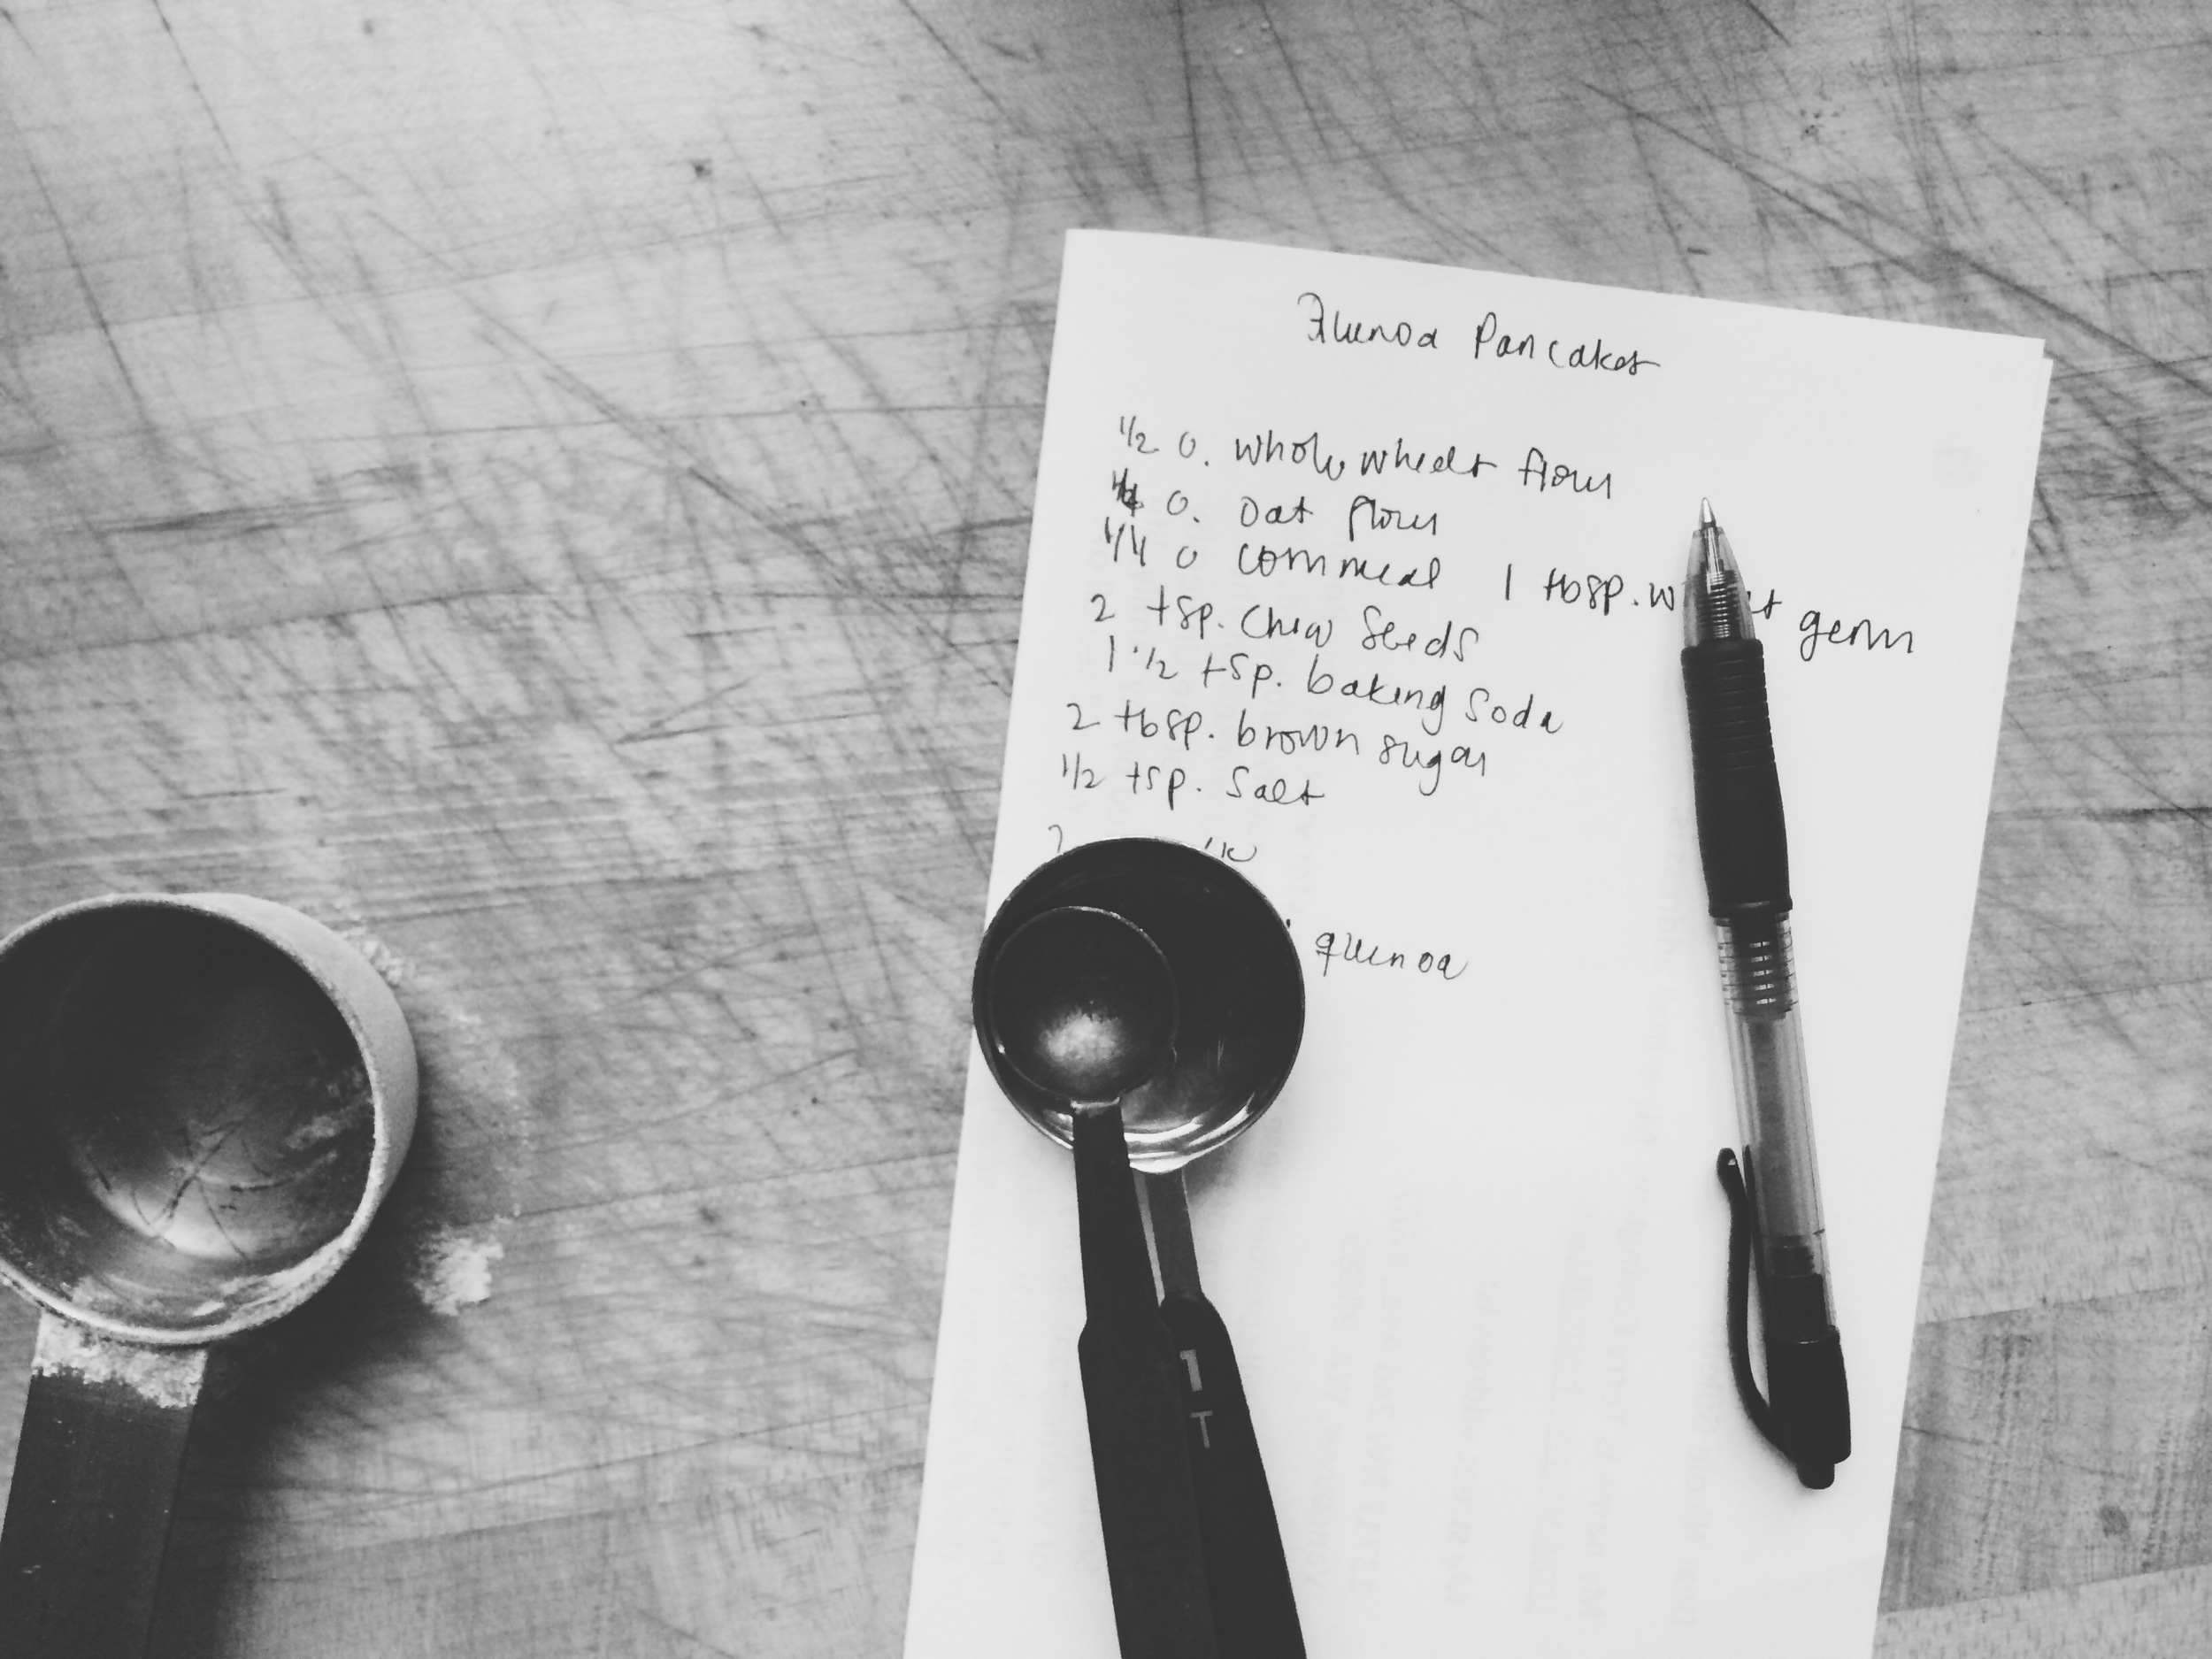 Quinoa Pancakes
1/2 c. whole wheat flour
c. oat flour
1/4 c cornmeal 1 tbsp. germ
2 tsp. chia seeds
1 1/2 tsp. baking soda
2 tbsp. brown sugar
1/2 tsp. salt
quinoa
1
T